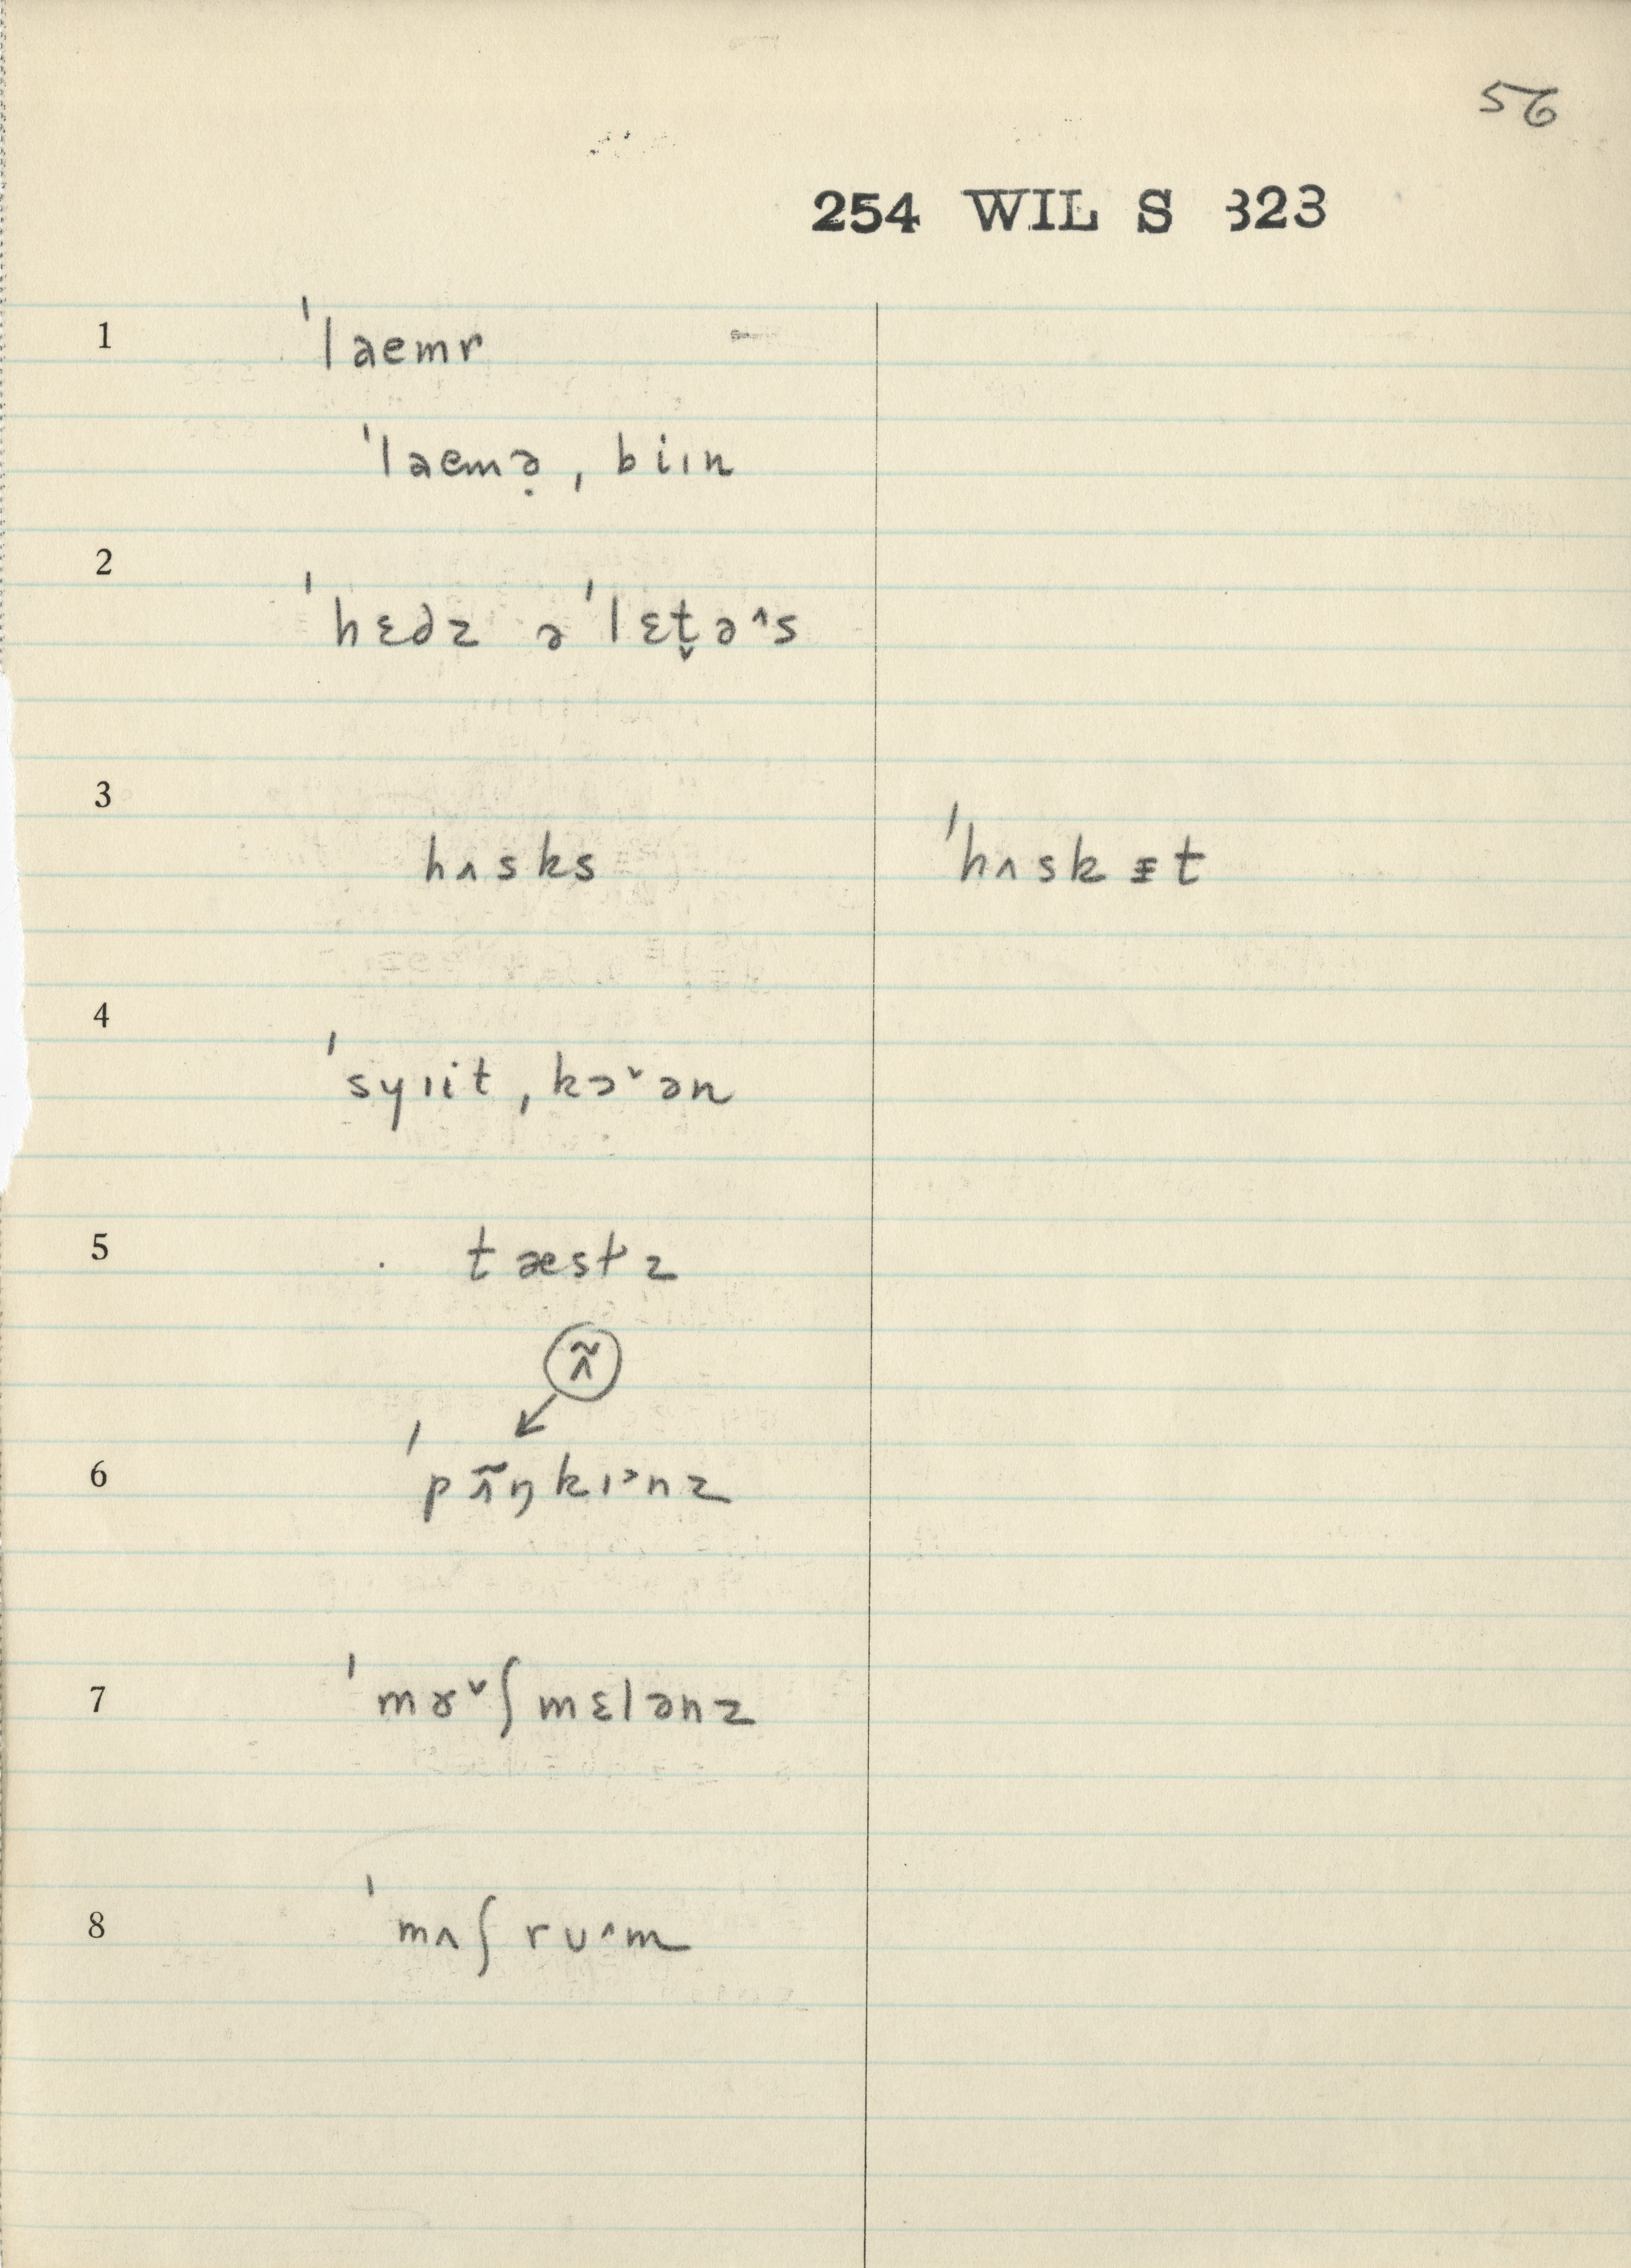 56
254 WIL S 323
1 ˈlaemr
ˈlaemə̣, biɪn
2 ˈhɛdz əˈlɛt̬ə^s
3 hʌsks ˈhʌskᵻt
4 ˈsyɪit, kɔˇən
5 tæstz
ʌ̃
6 ˈpʌ̃ŋkɪ˃nz
7 ˈmɤˇʃmɛlənz
8 ˈmʌʃrʊ^m